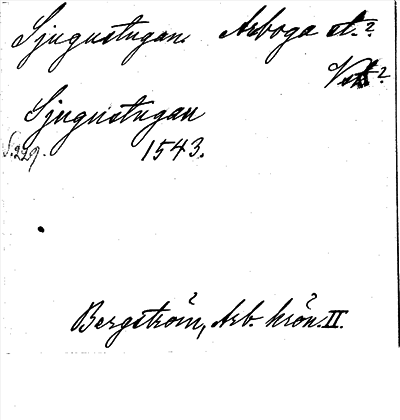 Sjugustugan. Arboga st.?
Vstm?
Sjugustugan
S. 229. 1543.
Bergström, Arb. krön. II.